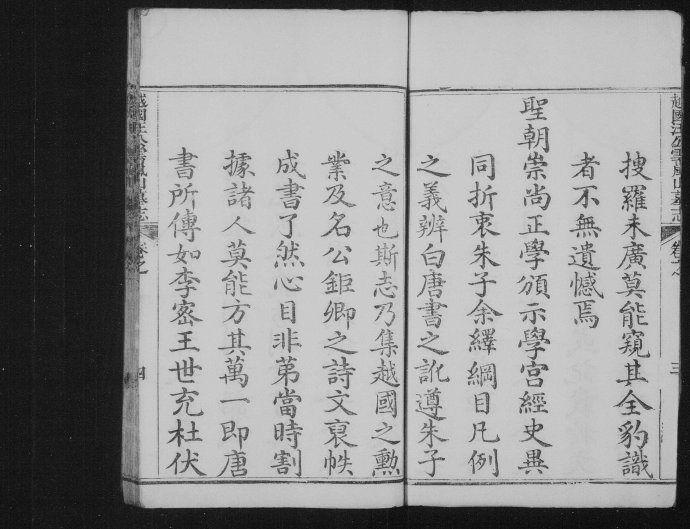 越國汪公雲嵐山墓志
卷之
三
搜羅未廣莫能窺其全豹識
者不無遺憾焉
聖朝崇尚正學頒示學宮經史異
同折衷朱子余繹綱目凡例
之義辨白唐書之訛遵朱子
之意也斯志乃集越國之勲
業及名公鉅卿之詩文裒帙
成書了然心目非苐當時割
據諸人莫能方其萬一即唐
書所傳如李密王世充杜伏
越國汪公雲嵐山墓志
卷之
四